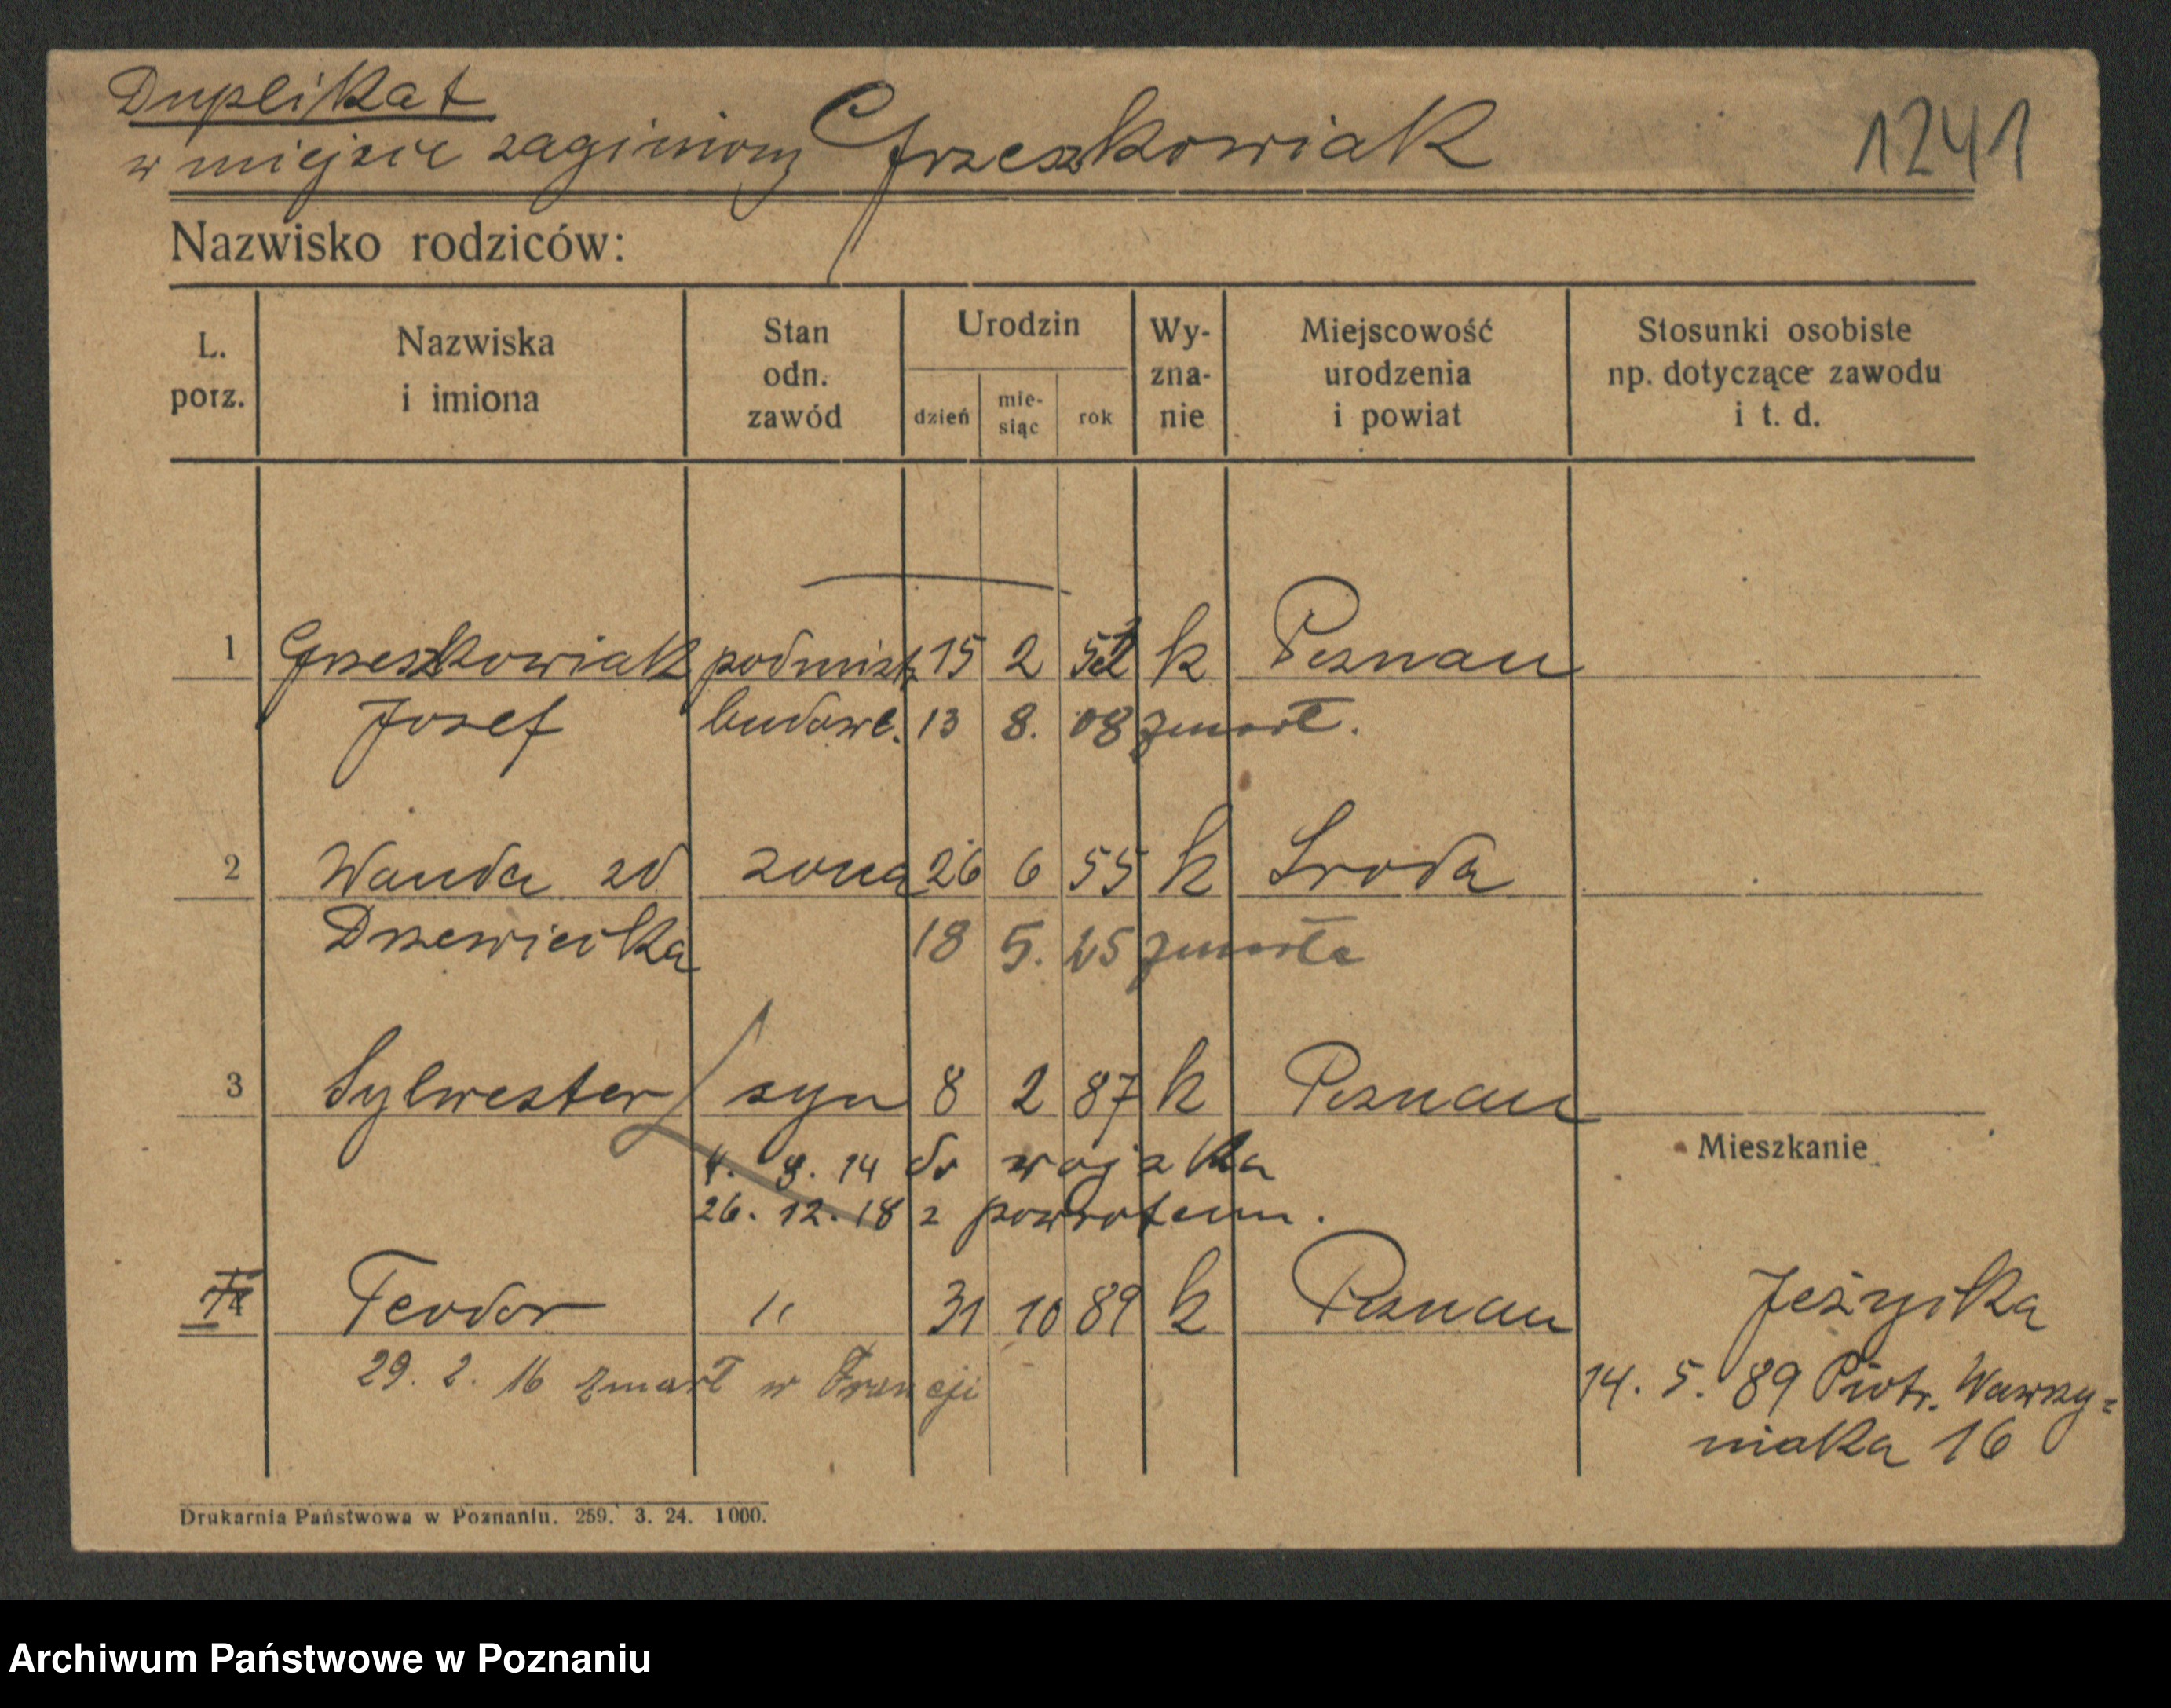 Duplikat
w miejsce zaginionej Grzeszkowiak 1241
Nazwisko rodziców:
L. porz. Nazwiska i imiona Stan odn. zawód Urodzin dzień mie- siąc rok Wy- zna- nie Miejscowość urodzenia i powiat Stosunki osobiste np. dotyczące zawodu i t. d.
1 Grzeszkowiak podmistz 15 2 k Poznan
Josef budowl. 13 8. 08 zmarł.
2 Wanda zd zona 26 6 55 k Sroda
Drzewiecka 18 5. 25 zmarła
3 Sylwester syn 8 2 87 k Poznan
Mieszkanie
4. 8. 14 do wojska
26. 12. 18 z powrotem.
4 Teodor " 31 10 89 k Poznan Jeżycka
29. 2. 16 zmarł w Francji 14. 5. 89 Piotr. Wawrzy=
niaka 16
Drukarnia Państwowa w Poznaniu. 259. 3. 24. 1000.
Archiwum Państwowe w Poznaniu